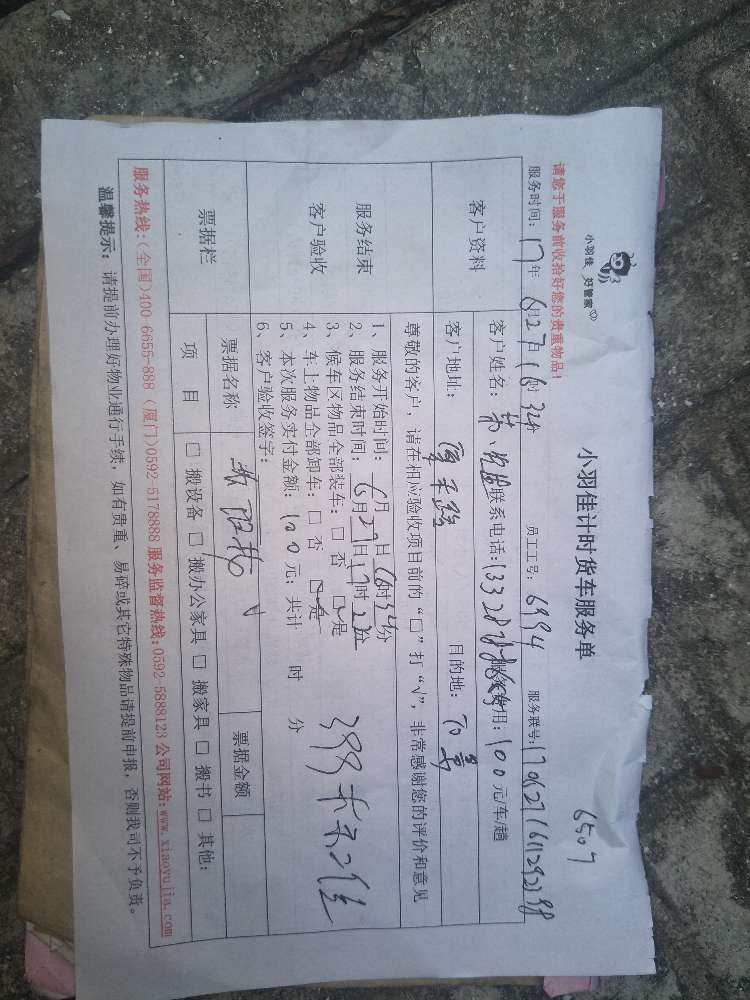 小羽佳 好管家
小羽佳计时货车服务单
6507
请您于服务前收拾好您的贵重物品！
服务时间：17年6月27日16时34分 员工工号：6994 服务联号：
客户资料
客户姓名： 联系电话： 服务费用：100元/车/趟
客户地址： 目的地：
尊敬的客户，请在相应验收项目前的“□”打“√”，非常感谢您的评价和意见
服务结束
客户验收
1、服务开始时间：6月27日16时34分
2、服务结束时间：6月27日17时2分
3、候车区物品全部装车：□ 否 □ 是
4、车上物品全部卸车：□ 否 □ 是
5、本次服务实付金额：100元；共计 时 分
6、客户验收签字：
票据栏
票据名称 票据金额
项 目 □ 搬设备 □ 搬办公家具 □ 搬家具 □ 搬书 □ 其他：
服务热线：（全国）400-6655-888（厦门）0592-5178888 服务监督热线：0592-5888123 公司网站：www.xiaoyujia.com
温馨提示：请提前办理好物业通行手续，如有贵重、易碎或其它特殊物品请提前申报，否则我司不予负责。